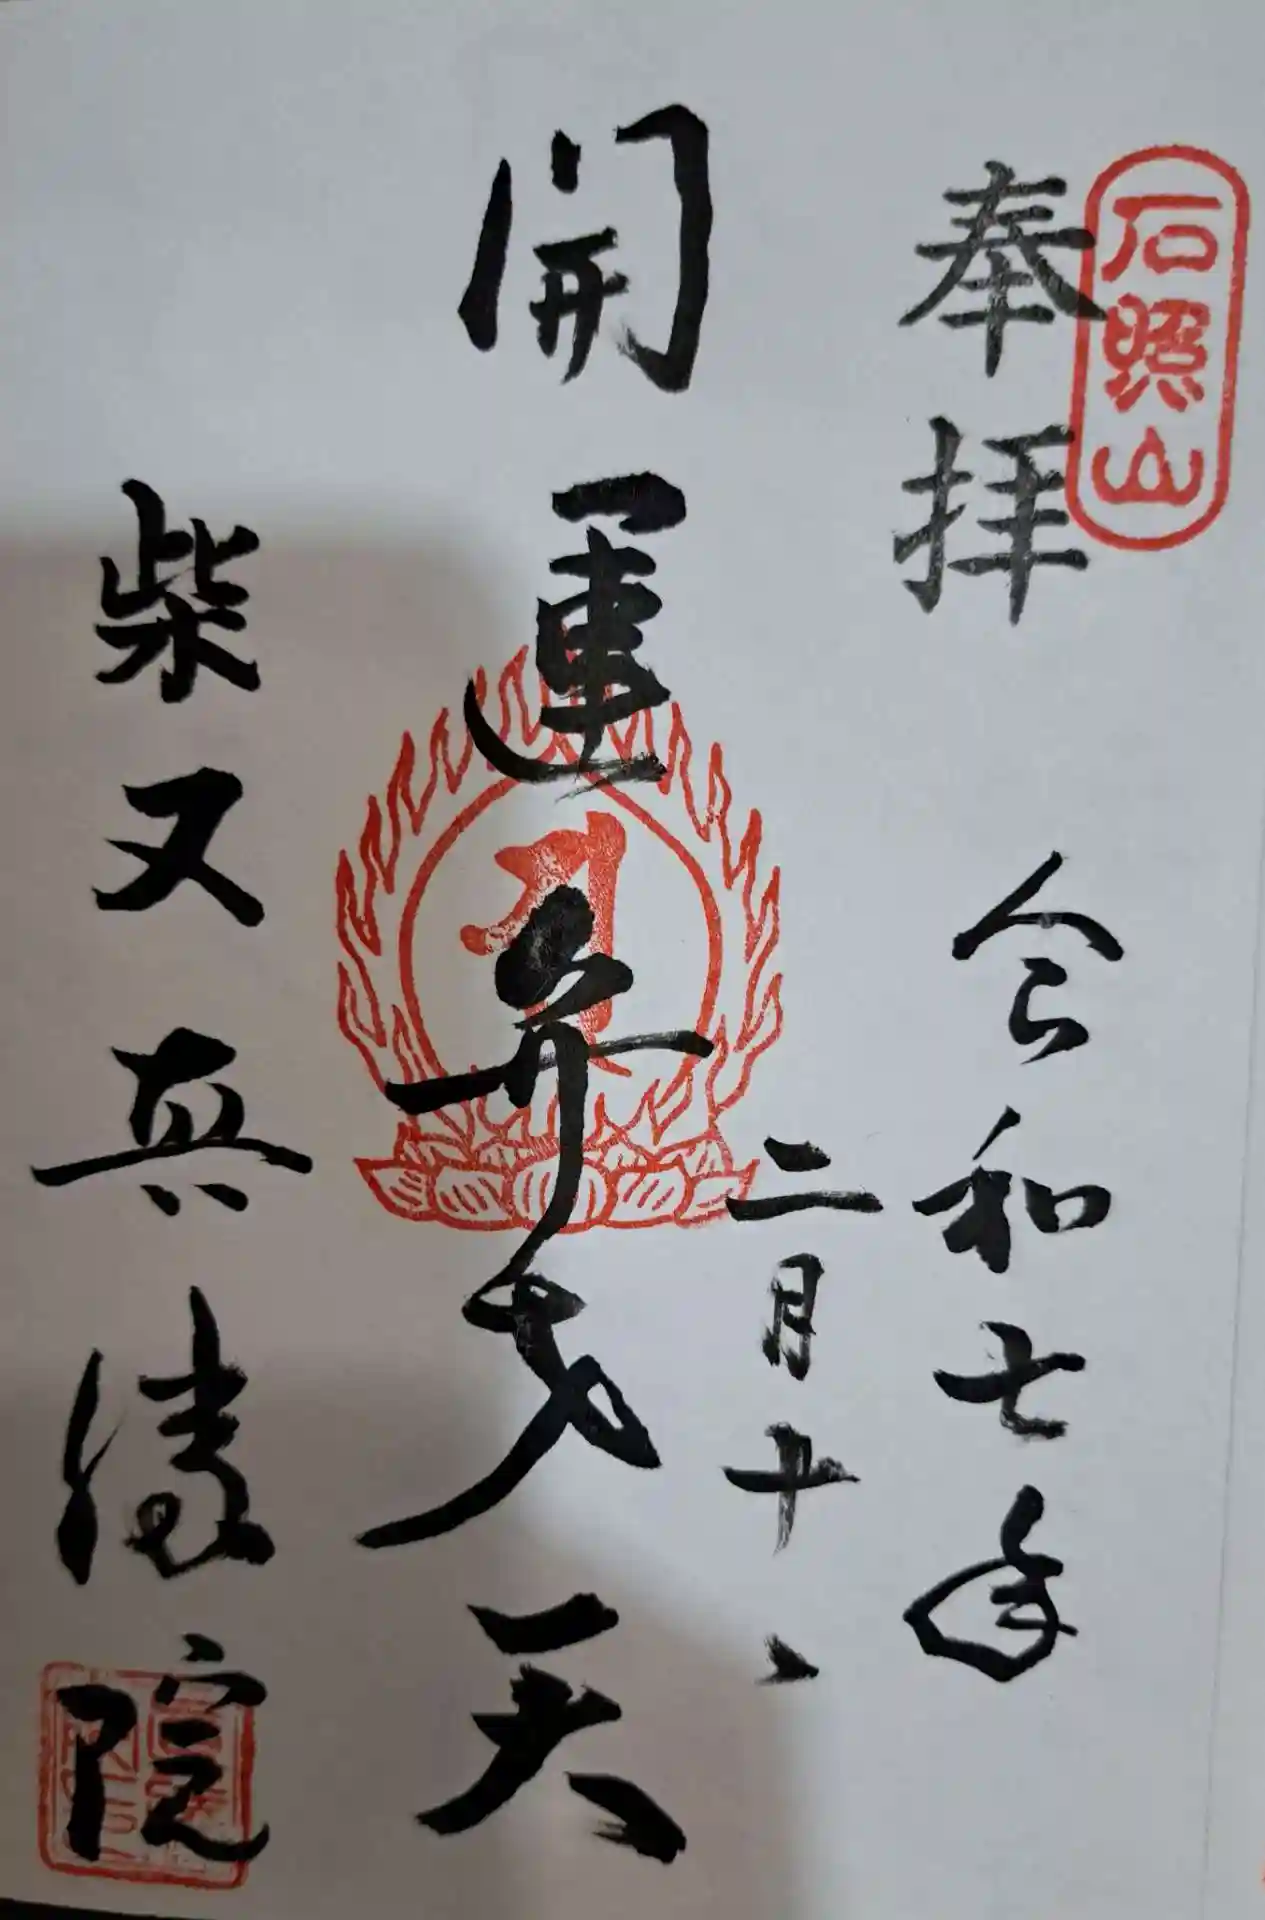 石照山
奉拝
令和七年
二月十一
開運弁才天
柴又真勝院